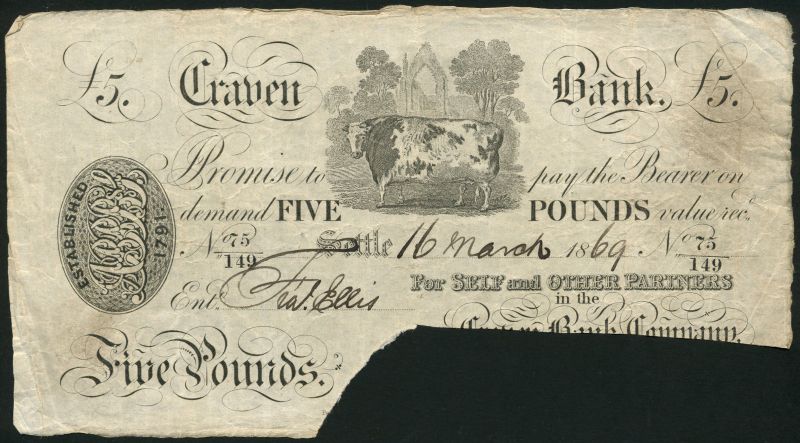 £5. Craven Bank. £5.
Promise to pay the Bearer on
demand FIVE POUNDS value rec.
No 75/149 Settle 16 March 1869 No 75/149
For SELF and OTHER PARTNERS
Ent. Fra. Ellis in the
Craven Bank Company,
Five Pounds.
ESTABLISHED 1791